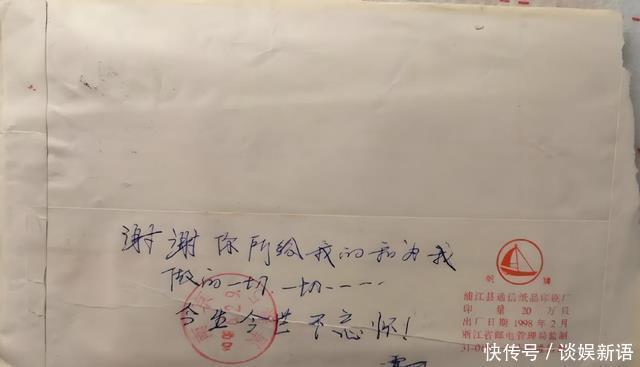 谢谢你所给我的和为我
做的一切.一切·····
今生今世不忘怀!
帆 牌
浦江县通信纸品印刷厂
印 量 20 万只
出厂日期 1998 年 2 月
浙江省邮电管理局监制
快传号/谈娱新语